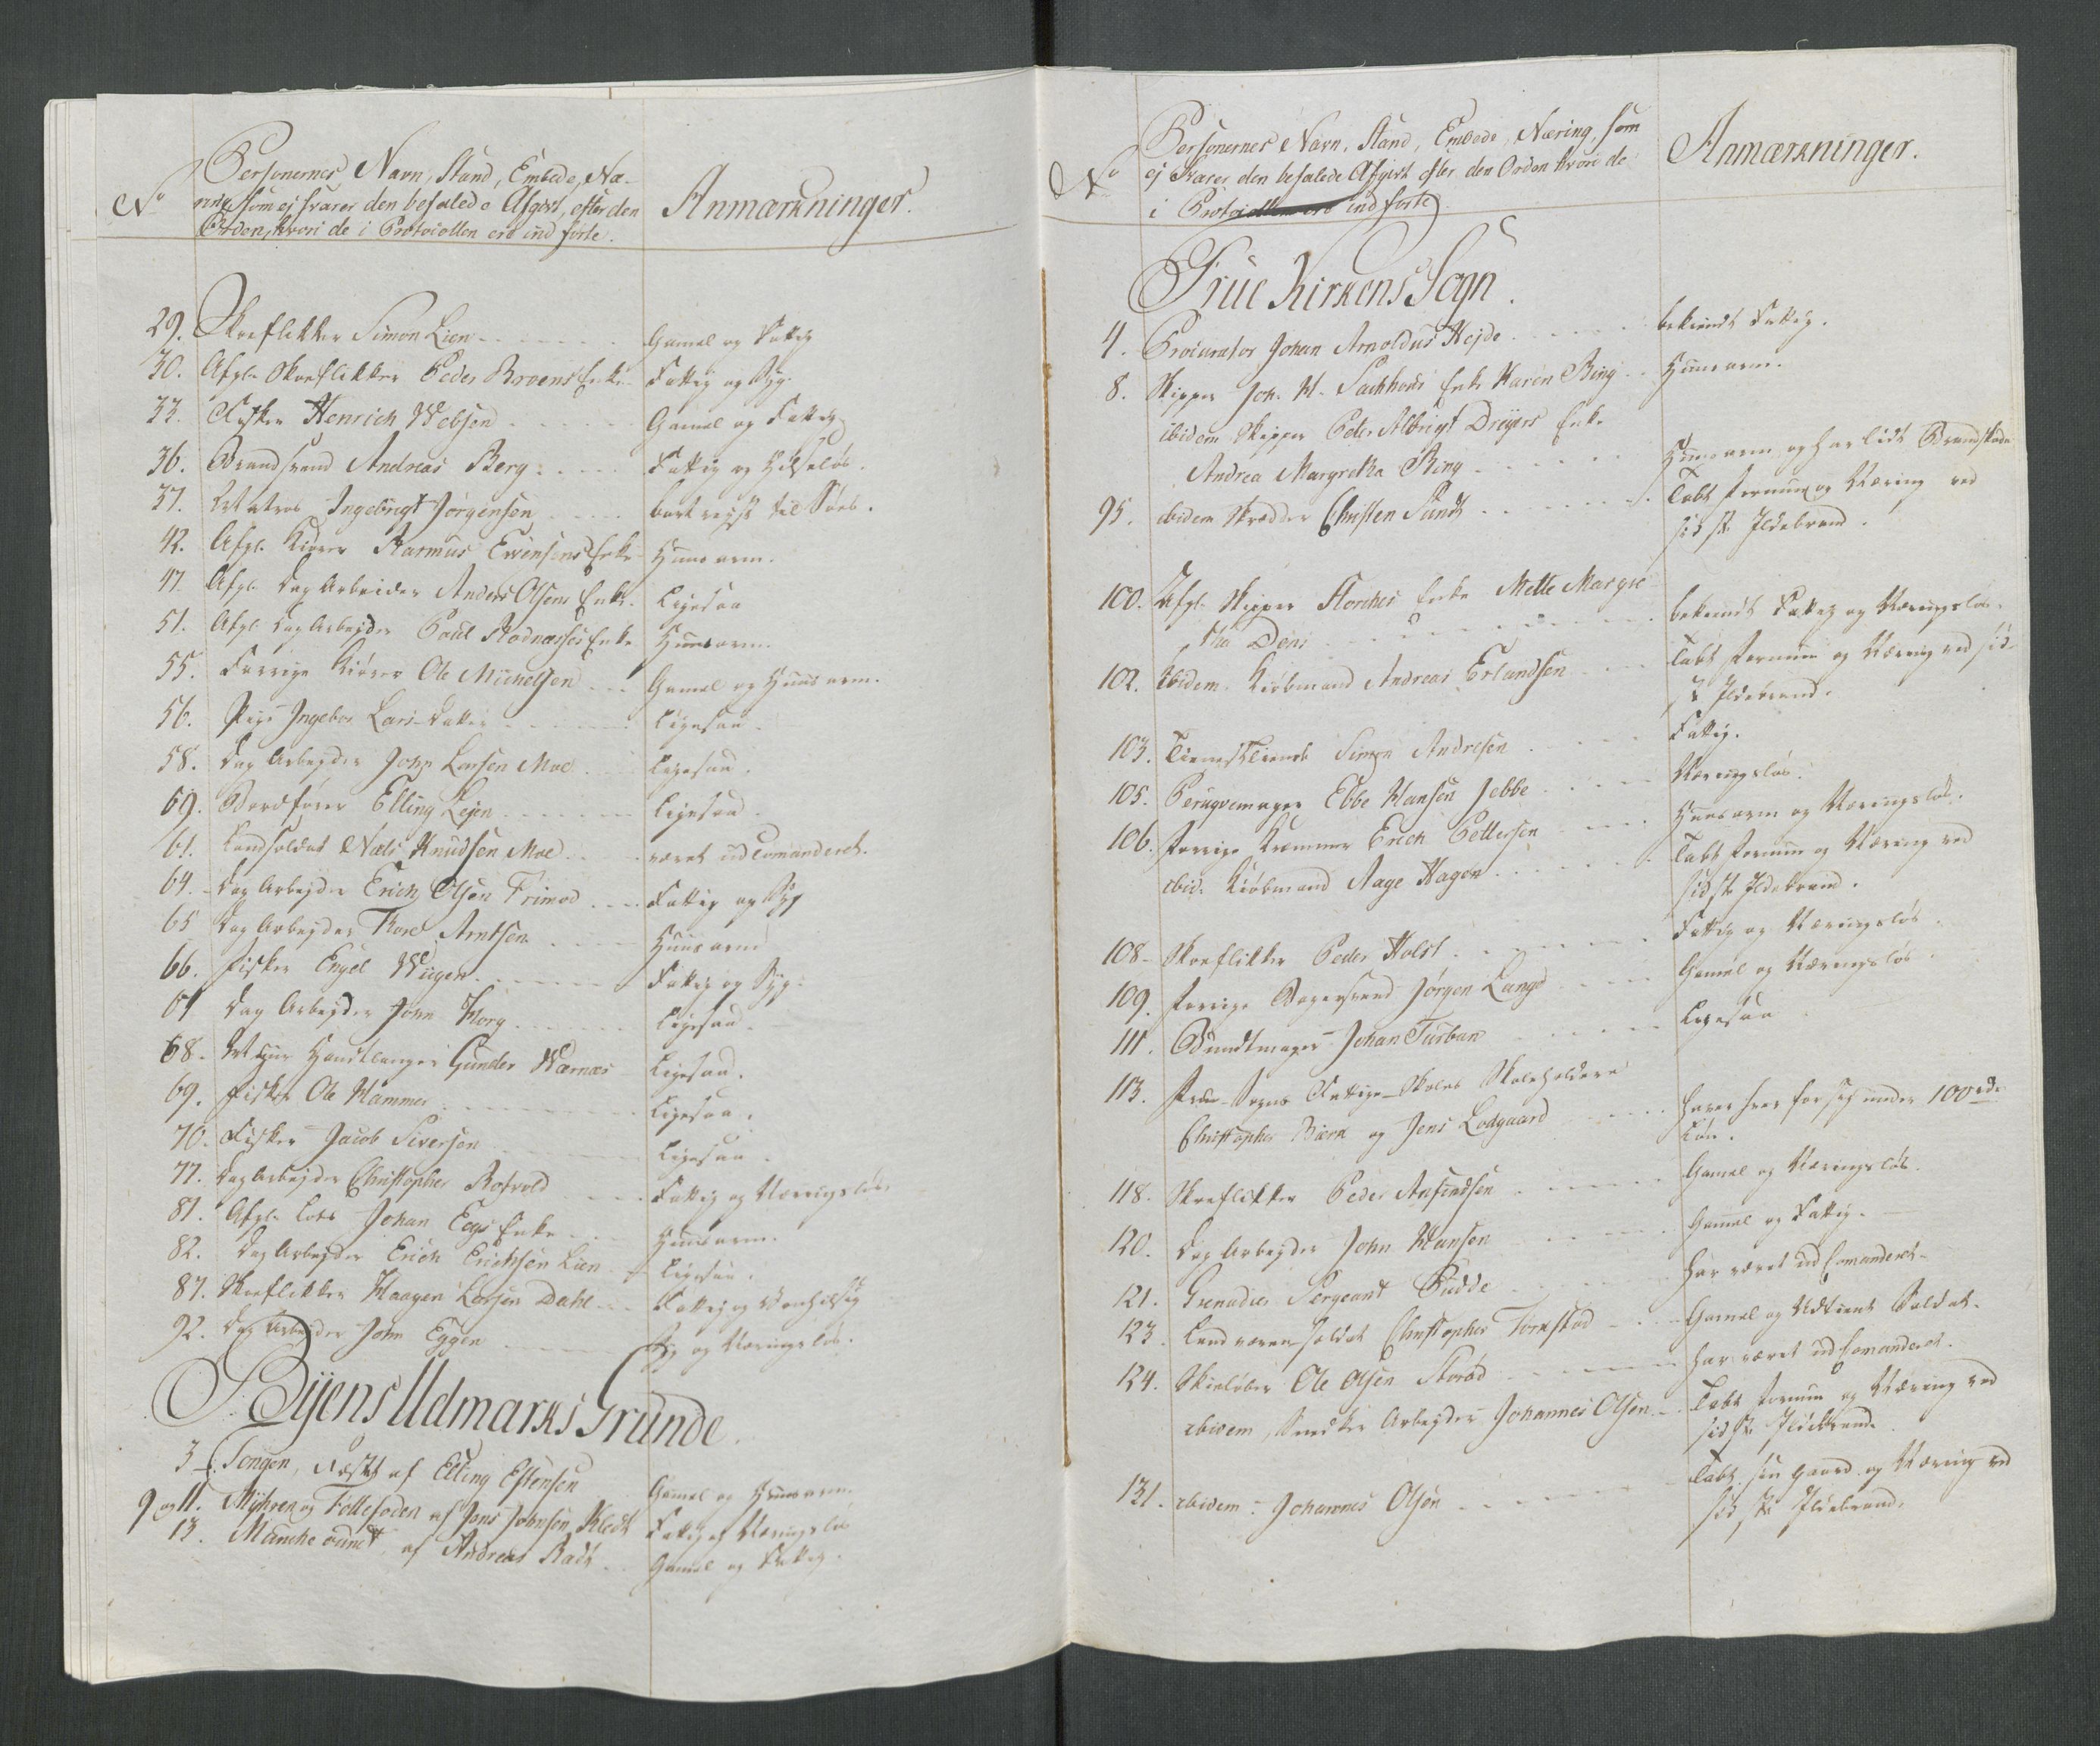 No
Personernes Navn, Stand, Embede, Næ-
ring, som ej svarer den befalede Afgivt, efter den
Orden, hvori de i Protocollen ere indførte.
Anmærkninger.
29. Skoeflikker Simon Lien Gamel og Fattig
30. Afgl. Skoeflikker Peder Broens Enke Fattig og Syg.
33. Fisker Henrich Webson Gamel og Fattig
36. Brandsvend Andreas Berg Fattig og Hilseløs.
37. Matros Ingebrigt Jørgensen bortreyst til Søes.
42. Afgl. Kiører Rasmus Evensens Enke Huusarm.
47. Afgl. Dag Arbeider Anders Olsens Enke. Ligesaa
51. Afgl. Dag Arbejder Poul Enke Huusarm
55. Forrige Kiører Ole Michelsen Gamel og Huusarm.
56. Pige Ingebor Lars-Datter Ligesaa.
58. Dag Arbejder John Larsen Moe Ligesaa.
69. Elling Lejen Ligesaa.
61. Landsoldat Niels Knudsen Moe været udComanderet.
64. Dag Arbejder Erich Olsen Trimod Fattig og Syg
65 Dag Arbejder Thore Arntsen Huusarm
66. Fisker Engel Wiigen Fattig og Syg.
67 Dag Arbejder John Horg Ligesaa.
68. Muur Handtlanger Gunder Wærnæs Ligesaa.
69. Fisker Ole Hammer Ligesaa.
70. Fisker Jacob Sivertsen Ligesaa.
77. Dag Arbejder Christopher Rotvold Fattig og Næringsløs
81. Afgl. Lods Johan Eegs Enke Huusarm.
82. Dag Arbejder Erich Erichsen Lien Ligesaa.
87. Skoeflikker Haagen Larsen Dahl Fattig og Vanhilsig
92. Dag Arbejder John Eggen Syg og Næringsløs.
Byens Udmarks Grunde.
3. Engen, af Elling Estensen Gamel og Huusarm.
9 og 11. Myhren og Tellefoden af Jens Johnsen Kledt Fattig og Næringsløs
13. af Andreas Rads Gamel og Fattig.
No
Personernes Navn, Stand, Embede, Næring, som
ej svarer den befalede Afgivt efter den Orden hvori de
i Protocollen ere indførte
Anmærkninger.
Frue Kirkens Sogn.
4. Procurator Johan Arnoldus Hejde bekiendt Fattig.
8. Skipper Joh. H. Enke Karen Ring Huusarm.
ibidem Skipper Peder Albrigt Dreyers Enke
Andrea Margretha Ring Huusarm og har lidt Brandskade
95. ibidem Skrædder Christen Sundt Tabt Formue og Næring ved
sidste Ildebrand.
100. Afgl. Skipper Storches Enke Mette Margre-
tha Dens bekiendt Fattig og Næringsløs.
102. Ibidem. Kiøbmand Andreas Erlandsen Tabt Formue og Næring ved sid-
ste Ildebrand.
103. Simon Andresen Fattig.
105. Perugvemager Ebbe Hansen Jebbe Næringsløs.
106. Forrige Kræmmer Erich Pettersen Huusarm og Næringsløs.
ibid. Kiøbmand Aage Hagen Tabt Formue og Næring ved
sidste Ildebrand.
108. Skoeflikker Peder Holst Fattig og Næringsløs.
109. Forrige Bagersvend Jørgen Lange Gamel og Næringsløs.
111. Bundtmager Johan Turban Ligesaa
113. Frue Sogns Fattige-Skoles Skoleholdere
Christopher Biørn og Jens Lodgaard haver hver for sig under 100 rd.
Løn.
118. Skoeflikker Peder Anfindsen Gamel og Næringsløs.
120. Dag Arbejder John Hansen Gamel og Fattig.
121. Grenadier Sergeant Budde har været udComanderet.
123. Landværn Soldat Christopher Tornstad Gamel og Udtient Soldat.
124. Skieløber Ole Olsen Storød har været udComanderet.
ibidem, Snedker Arbejder Johannes Olsen Tabt Formue og Næring ved
sidste Ildebrand.
131. ibidem Johannes Olsen Tabt sin Gaard og Næring ved
sidste Ildebrand.